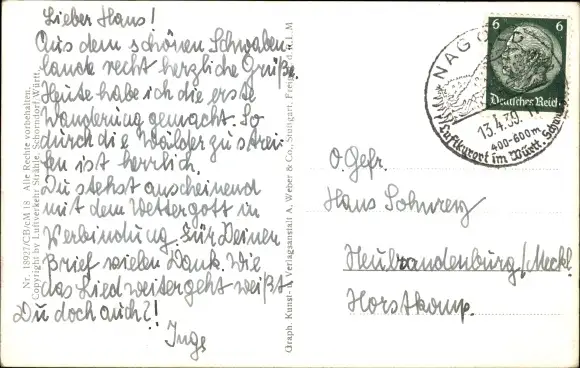 Lieber Hans!
Aus dem schönen Schwaben
lande recht herzliche Grüße.
Heute habe ich die erste
Wanderung gemacht. So
durch die Wälder zu strei-
fen ist herrlich.
Du stehst anscheinend
mit dem Wettergott in
Verbindung. Für Deinen
Brief vielen Dank. Wie
das Lied weitergeht weißt
Du doch auch?!
Inge
Nr. 18927/CB/cM 18 Alle Rechte vorbehalten.
Copyright by Luftverkehr Strähle, Schorndorf Württ.
Graph. Kunst- u. Verlagsanstalt A. Weber & Co., Stuttgart. Freigeg. d. R.L.M
6 6
Deutsches Reich
NAGOLD
13.4.39.
400-600m
Luftkurort im Württ.
O. Gefr.
Hans
Neubrandenburg/Meckl
Horstkomp.